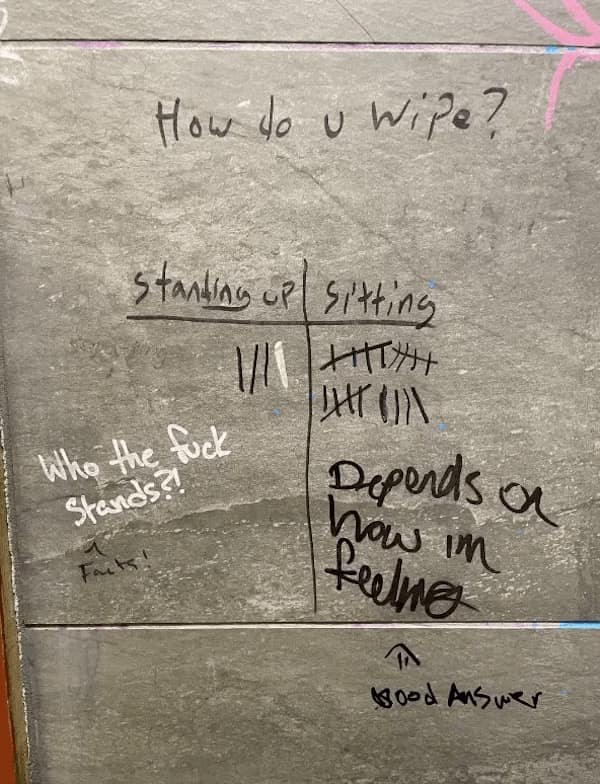 How do u wipe?
Standing up
Sitting
Who the fuck
Stands?!
Facts!
Depends on
how im
feeling
Good Answer